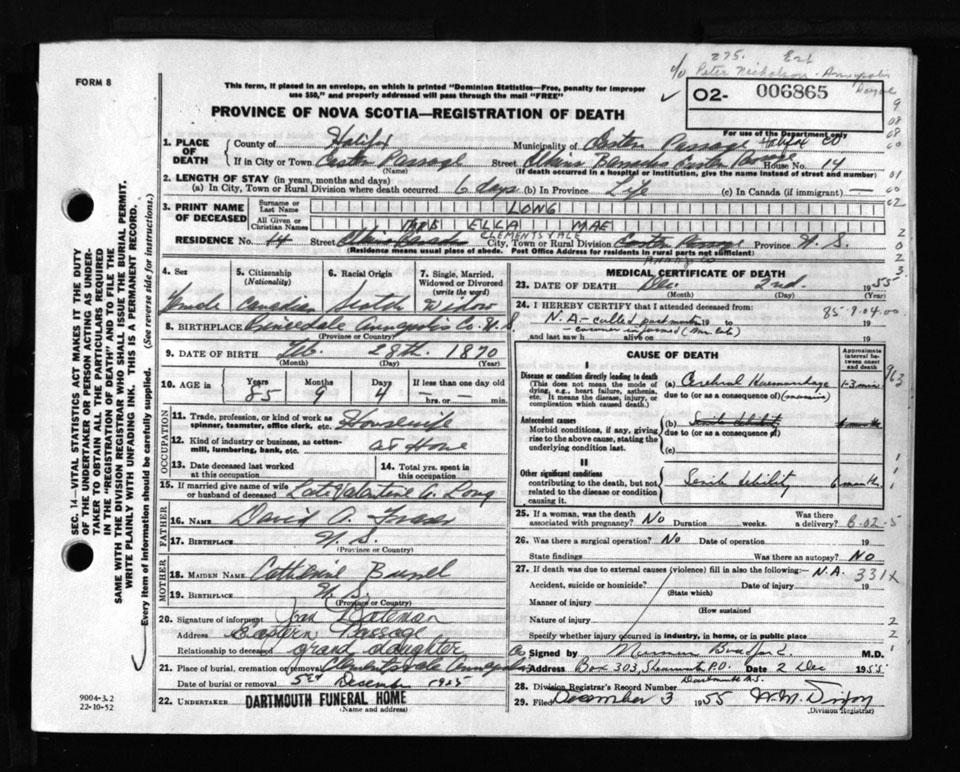 275. Ext
c/o Peter Nicholson - Annapolis Royal
FORM 8
This form, if placed in an envelope, on which is printed "Dominion Statistics—Free, penalty for improper
use $50," and properly addressed will pass through the mail "FREE"
02- 006865
PROVINCE OF NOVA SCOTIA—REGISTRATION OF DEATH
For use of the Department only
1. PLACE OF DEATH
County of Halifax Municipality of Eastern Passage Halifax CO
If in City or Town Eastern Passage Street Elkins Barracks Eastern Passage House No. 14
(Name) (If death occurred in a hospital or institution, give the name instead of street and number)
2. LENGTH OF STAY (in years, months and days)
(a) In City, Town or Rural Division where death occurred 6 days (b) In Province Life (c) In Canada (if immigrant) —
3. PRINT NAME OF DECEASED
Surname or Last Name LONG
All Given or Christian Names MRS ELLA MAE
CLEMENTSVALE
RESIDENCE No. 14 Street Elkins Barracks City, Town or Rural Division Eastern Passage Province N.S.
(Residence means usual place of abode. Post Office Address for residents in rural parts not sufficient)
4. Sex Female
5. Citizenship (Nationality) Canadian
6. Racial Origin Scotch
7. Single, Married, Widowed or Divorced (write the word) Widow
8. BIRTHPLACE Princedale Annapolis Co. N.S.
(Province or Country)
9. DATE OF BIRTH Feb. 28th. 1870
(Month) (Day) (Year)
10. AGE in Years 85 Months 9 Days 4 If less than one day old
hrs. or — min.
OCCUPATION
11. Trade, profession, or kind of work as spinner, teamster, office clerk, etc. Housewife
12. Kind of industry or business, as cotton-mill, lumbering, bank, etc. at Home
13. Date deceased last worked at this occupation
14. Total yrs. spent in this occupation
15. If married give name of wife or husband of deceased Late Valentine W. Long
FATHER
16. NAME David A. Fraser
17. BIRTHPLACE N.S.
(Province or Country)
MOTHER
18. MAIDEN NAME Catherine
19. BIRTHPLACE N.S.
(Province or Country)
20. Signature of informant Jean Bateman
Address Eastern Passage
Relationship to deceased grand daughter
21. Place of burial, cremation or removal Clementsvale Annapolis Co
Date of burial or removal 5th December 1955
22. UNDERTAKER DARTMOUTH FUNERAL HOME
(Name and address)
MEDICAL CERTIFICATE OF DEATH
23. DATE OF DEATH Dec. 2nd. 1955
(Month) (Day) (Year)
24. I HEREBY CERTIFY that I attended deceased from: 85-9-04-00
N.A - called post mortem 19 to
- coroner informed
and last saw h alive on 19
CAUSE OF DEATH
Approximate interval between onset and death
I
Disease or condition directly leading to death
(This does not mean the mode of dying, e.g., heart failure, asthenia, etc. It means the disease, injury, or complication which caused death.)
(a) Cerebral Haemorrhage 1-3 min
due to (or as a consequence of)
Antecedent causes
Morbid conditions, if any, giving rise to the above cause, stating the underlying condition last
(b) Senile debility 6 months
due to (or as a consequence of)
(c)
II
Other significant conditions
contributing to the death, but not related to the disease or condition causing it.
Senile debility 6 months
25. If a woman, was the death associated with pregnancy? No Duration weeks. Was there a delivery? 6-02-5
26. Was there a surgical operation? No Date of operation 19
State findings Was there an autopsy? No
27. If death was due to external causes (violence) fill in also the following:- N.A. 331X
Accident, suicide or homicide? Date of injury 19
(State which)
Manner of injury
(How sustained
Nature of injury
Specify whether injury occurred in industry, in home, or in public place
Signed by Bradford. M.D.
Address Box 303, Shearwater P.O. Date 2 Dec 1955
Dartmouth N.S.
28. Division Registrar's Record Number
29. Filed December 3 1955 W.M. Dixon
(Division Registrar)
SEC. 14—VITAL STATISTICS ACT MAKES IT THE DUTY
OF THE UNDERTAKER OR PERSON ACTING AS UNDER-
TAKER TO OBTAIN ALL THE PARTICULARS REQUIRED
IN THE "REGISTRATION OF DEATH" AND TO FILE THE
SAME WITH THE DIVISION REGISTRAR WHO SHALL ISSUE THE BURIAL PERMIT.
WRITE PLAINLY WITH UNFADING INK. THIS IS A PERMANENT RECORD.
Every item of information should be carefully supplied. (See reverse side for instructions.)
9004-3.2
22-10-52